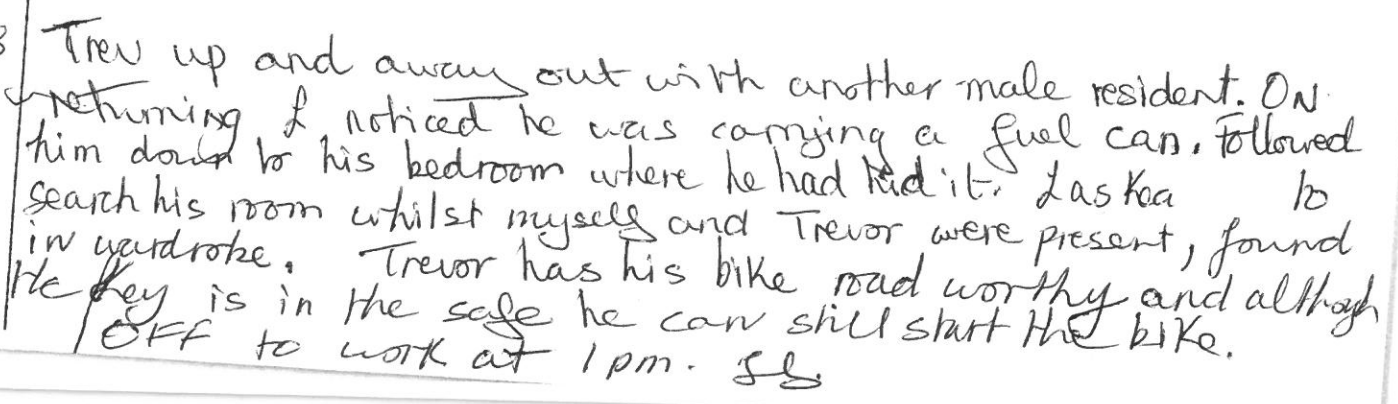 Trev up and away out with another male resident. ON
returning I noticed he was carrying a fuel can. Followed
him down to his bedroom where he had hid it. I asked to
search his room whilst myself and Trevor were present, found
in wardrobe. Trevor has his bike road worthy and although
the key is in the safe he can still start the bike.
OFF to work at 1pm.